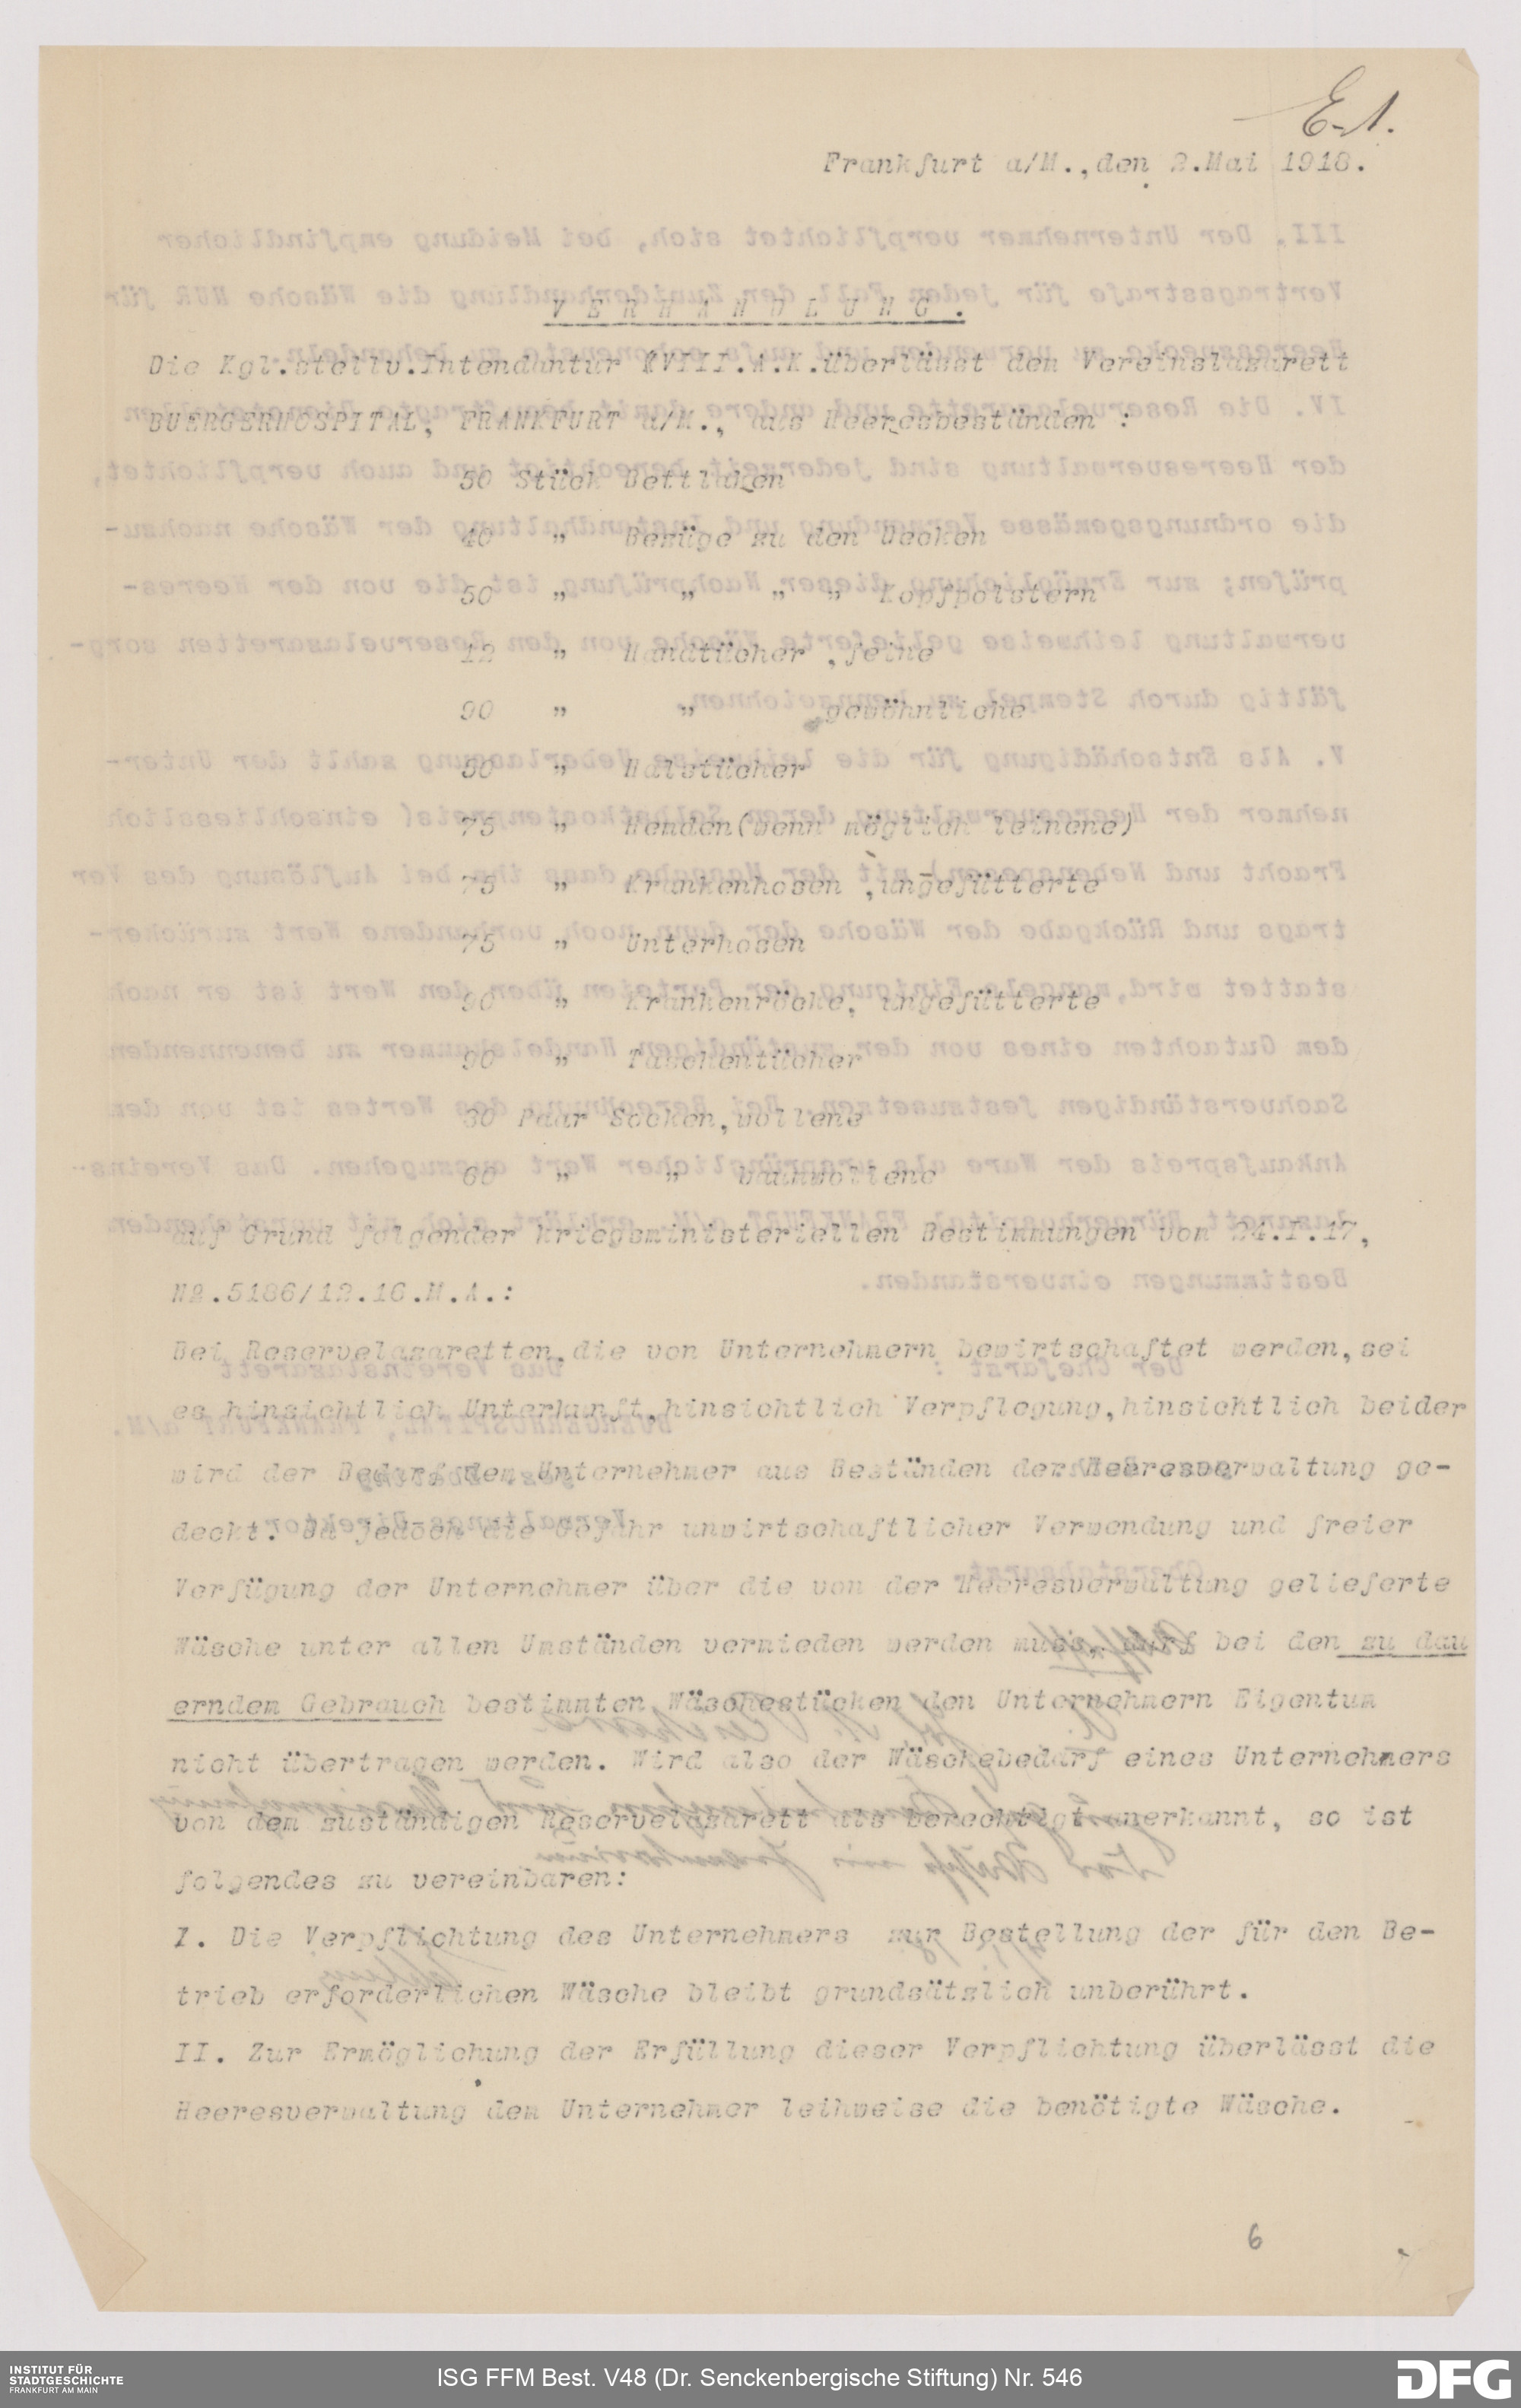 Frankfurt a/M.,den 2.Mai 1918.
V E R H A N D L U N G .
Die Kgl.stellv.Intendantur XVIII.A.K.überlässt dem Vereinslazarett
BUERGERHOSPITAL, FRANKFURT a/M., aus Heeresbeständen :
50 Stück Bettlaken
40 " Bezüge zu den Decken
50 " " " " Kopfpolstern
12 " Handtücher ,feine
90 " " gewöhnliche
50 " Halstücher
75 " Hemden(wenn möglich leinene)
75 " Krankenhosen ,ungefütterte
75 " Unterhosen
90 " Krankenröcke, ungefütterte
90 " Taschentücher
30 Paar Socken,wollene
60 " " baumwollene
auf Grund folgender kriegsministeriellen Bestimmungen vom 24.I.17,
No.5186/12.16.M.A.:
Bei Reservelazaretten,die von Unternehmern bewirtschaftet werden,sei
es hinsichtlich Unterkunft,hinsichtlich Verpflegung,hinsichtlich beider
wird der Bedarf dem Unternehmer aus Beständen der Heeresverwaltung ge-
deckt. Da jedoch die Gefahr unwirtschaftlicher Verwendung und freier
Verfügung der Unternehmer über die von der Heeresverwaltung gelieferte
Wäsche unter allen Umständen vermieden werden muss, darf bei den zu dau
erndem Gebrauch bestimmten Wäschestücken den Unternehmern Eigentum
nicht übertragen werden. Wird also der Wäschebedarf eines Unternehmers
von dem zuständigen Reservelazarett als berechtigt anerkannt, so ist
folgendes zu vereinbaren:
I. Die Verpflichtung des Unternehmers zur Bestellung der für den Be-
trieb erforderlichen Wäsche bleibt grundsätzlich unberührt.
II. Zur Ermöglichung der Erfüllung dieser Verpflichtung überlässt die
Heeresverwaltung dem Unternehmer leihweise die benötigte Wäsche.
6
INSTITUT FÜR
STADTGESCHICHTE
FRANKFURT AM MAIN
ISG FFM Best. V48 (Dr. Senckenbergische Stiftung) Nr. 546
DFG